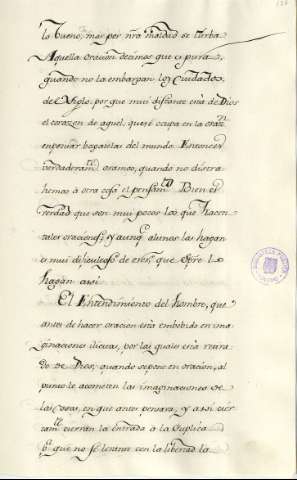 lo bueno, mas por nra maldad se turba
Aquella oracion decimos que es pura,
quando no la embargan los Cuidados
del Siglo, por que mui distante està de Dios
el corazon de aquel, que se ocupa en la oraon
en pensar bogatelas del mundo. Entonces
verdaderamte oramos, quando no distra
hemos à otra cosa el pensamto Bien es
verdad que son mui pocos los que hacen
tales oraciones; y aunqe algunos las hagan
es mui dificultoso de creer, que sipre lo
hagan assi.
El Entendimiento del hombre, que
antes de hacer oracion està embebido en ima
ginaciones ilicitas, por las quales està retira
do de Dios, quando se pone en oracion, al
punto le acometen las imaginaciones de
las cosas, en que antes pensara, y assi cier
tamte cierran la entrada à la Suplica
pa que no se levante con la libertad la